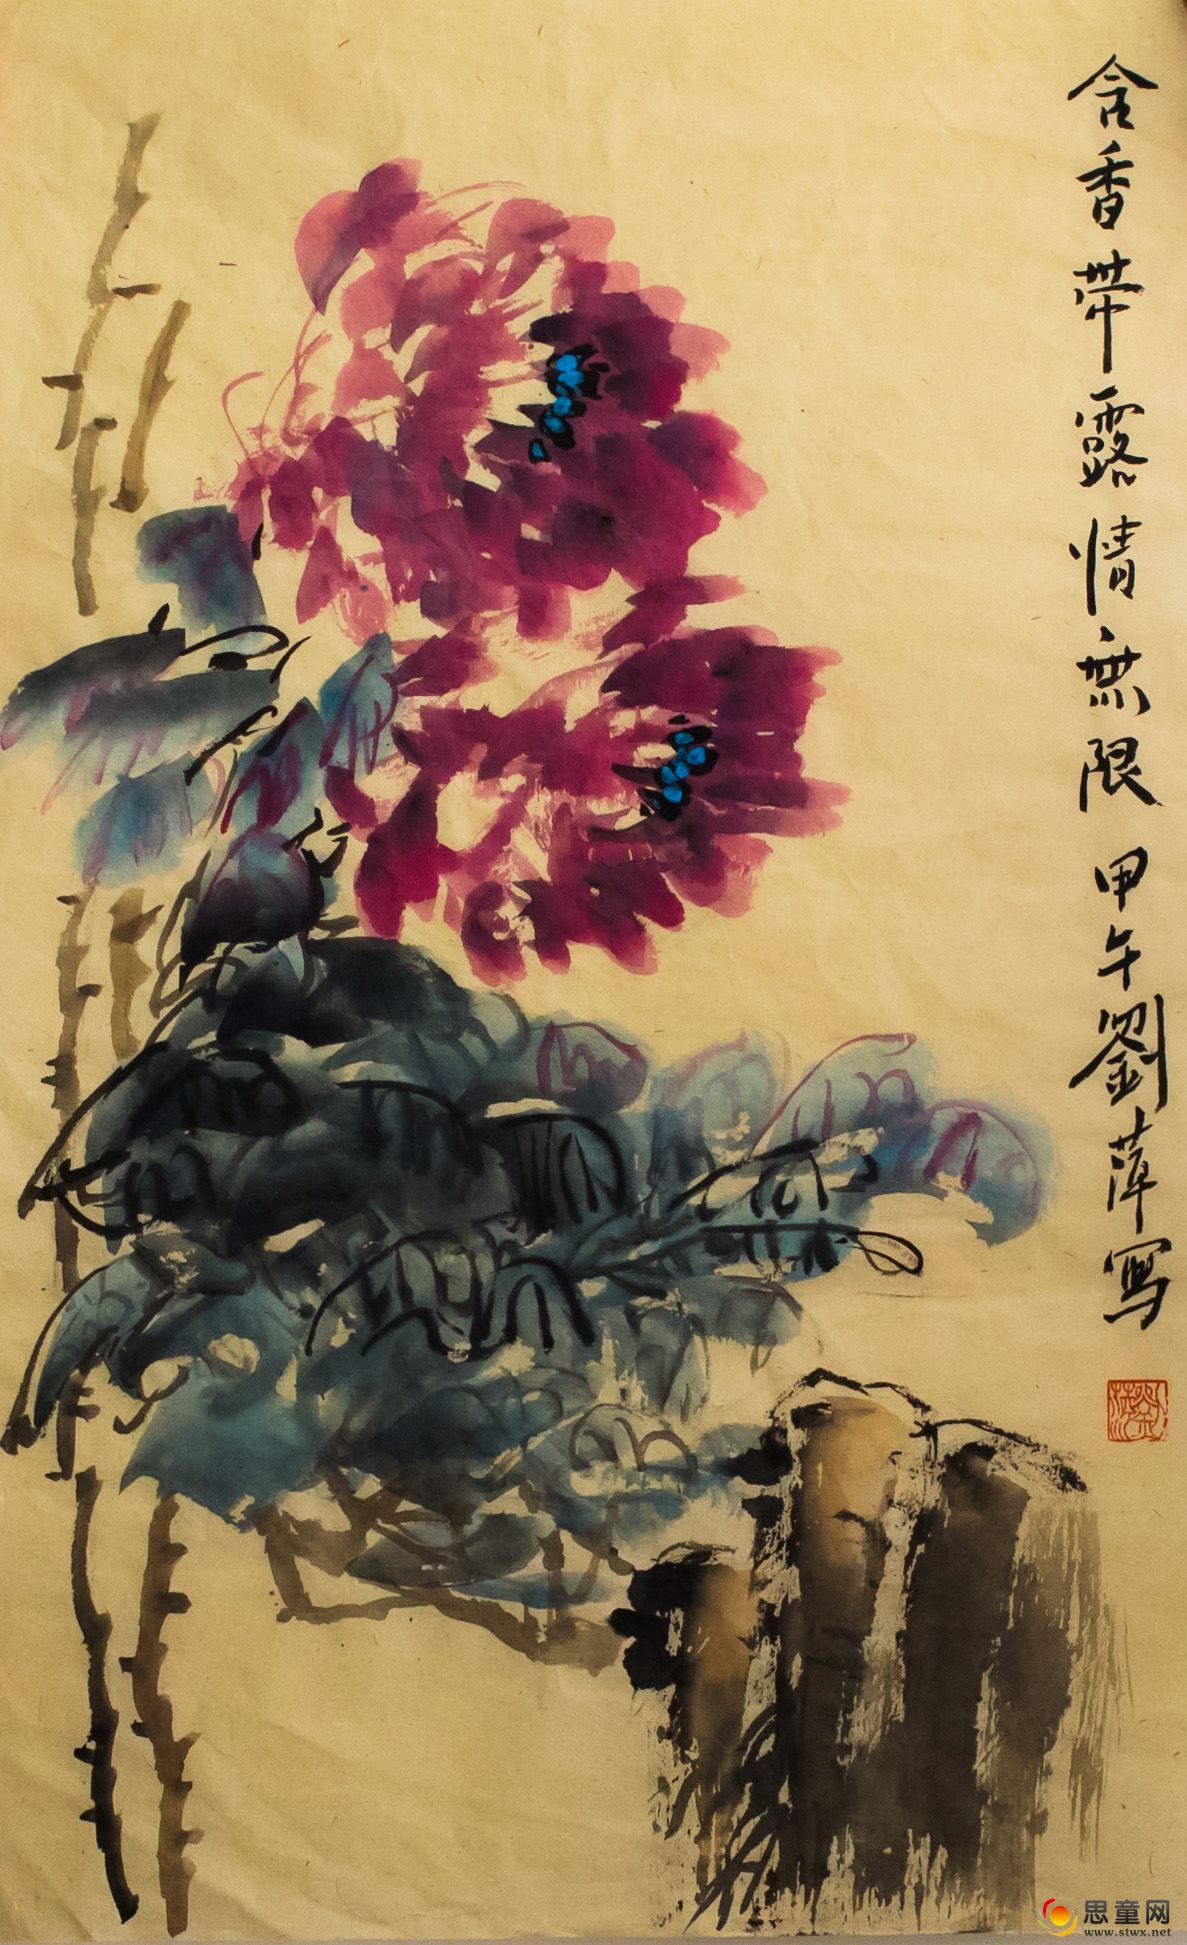 含香带露情無限 甲午劉萍寫
思童网
www.stwx.net